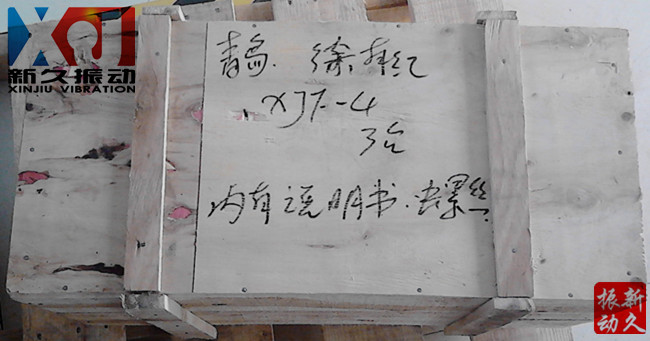 XJ
新久振动
XINJIU VIBRATION
青岛. 徐
XJF-4
3台
内有说明书.螺丝
新久
振动